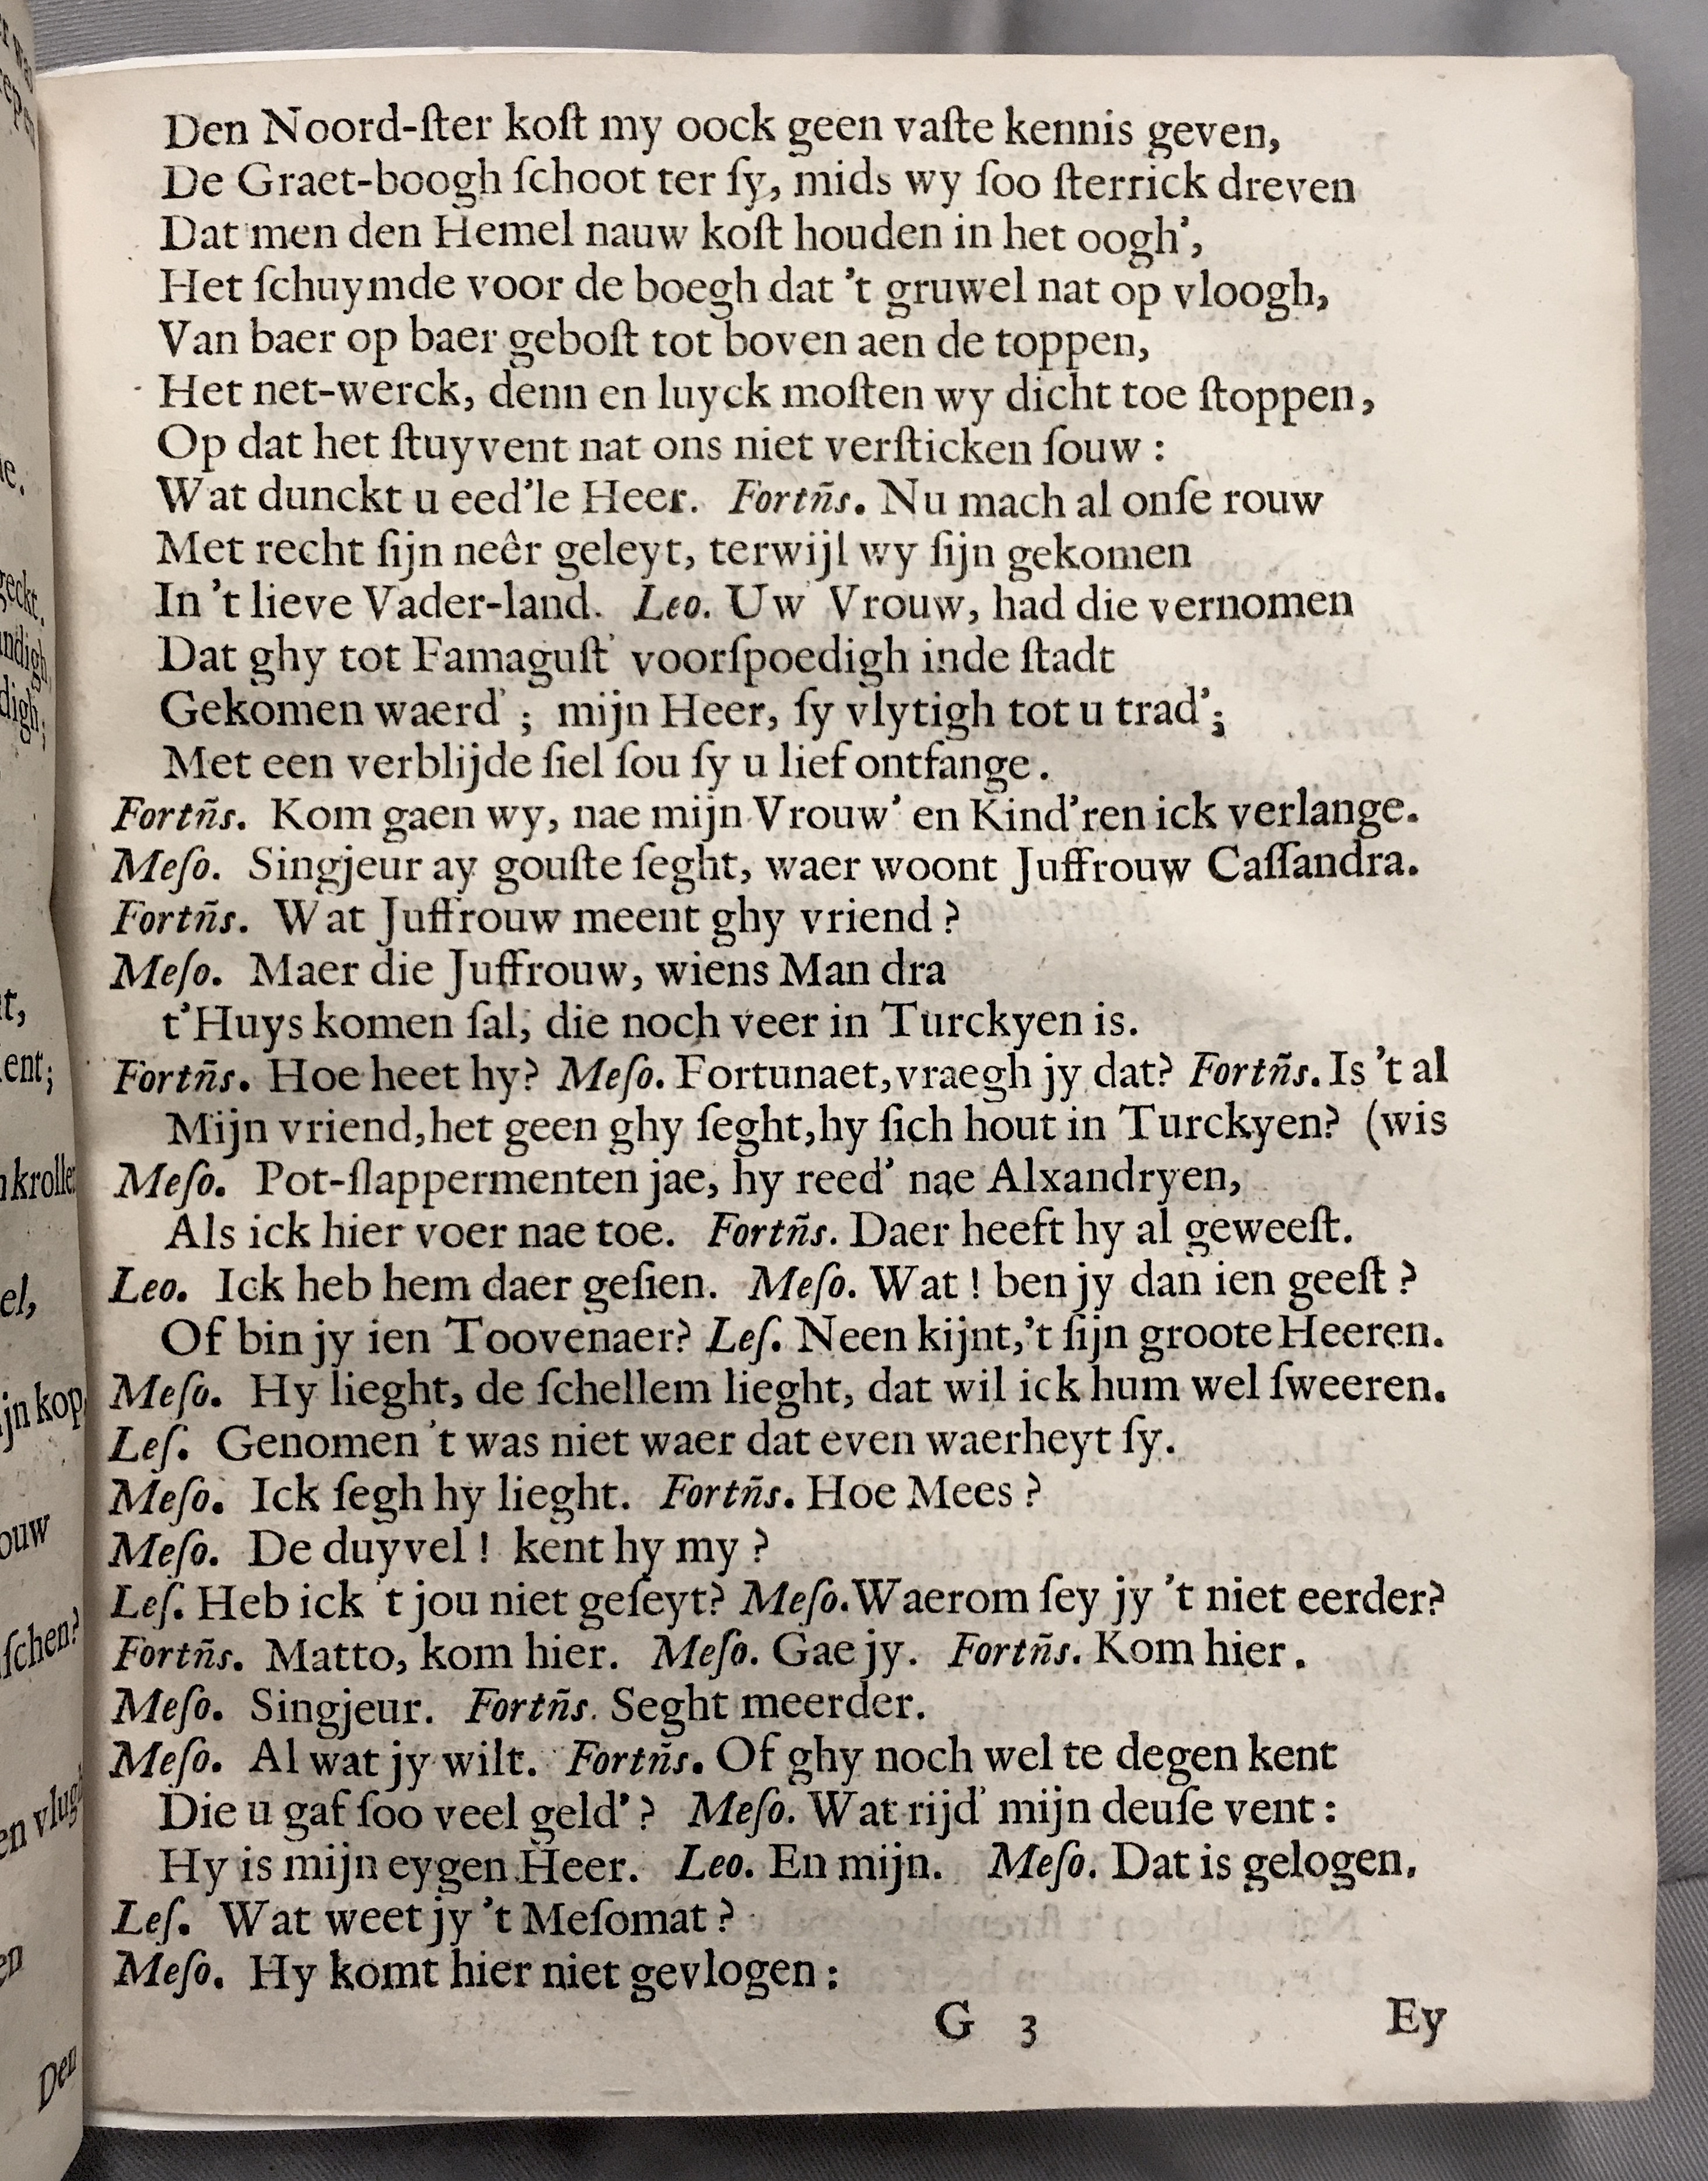 Den Noord-ſter koſt my oock geen vaſte kennis geven,
De Graet-boogh ſchoot ter ſy, mids wy ſoo ſterrick dreven
Dat men den Hemel nauw koſt houden in het oogh’,
Het ſchuymde voor de boegh dat ’t gruwel nat op vloogh,
Van baer op baer geboſt tot boven aen de toppen,
Het net-werck, denn en luyck moſten wy dicht toe ſtoppen,
Op dat het ſtuyvent nat ons niet verſticken ſouw :
Wat dunckt u eed’le Heer. Fortñs. Nu mach al onſe rouw
Met recht ſijn neêr geleyt, terwijl wy ſijn gekomen
In ’t lieve Vader-land. Leo. Uw Vrouw, had die vernomen
Dat ghy tot Famaguſt’ voorſpoedigh inde ſtadt
Gekomen waerd’ ; mijn Heer, ſy vlytigh tot u trad’;
Met een verblijde ſiel ſou ſy u lief ontfange.
Fortñs. Kom gaen wy, nae mijn Vrouw’ en Kind’ren ick verlange.
Meſo. Singjeur ay gouſte ſeght, waer woont Juffrouw Caſſandra.
Fortñs. Wat Juffrouw meent ghy vriend ?
Meſo. Maer die Juffrouw, wiens Man dra
t’Huys komen ſal, die noch veer in Turckyen is.
Fortñs. Hoe heet hy? Meſo. Fortunaet,vraegh jy dat? Fortñs. Is ’t al
Mijn vriend,het geen ghy ſeght,hy ſich hout in Turckyen? (wis
Meſo. Pot-ſlappermenten jae, hy reed’ nae Alxandryen,
Als ick hier voer nae toe. Fortñs. Daer heeft hy al geweeſt.
Leo. Ick heb hem daer geſien. Meſo. Wat ! ben jy dan ien geeſt ?
Of bin jy ien Toovenaer? Leſ. Neen kijnt,’t ſijn groote Heeren.
Meſo. Hy lieght, de ſchellem lieght, dat wil ick hum wel ſweeren.
Leſ. Genomen ’t was niet waer dat even waerheyt ſy.
Meſo. Ick ſegh hy lieght. Fortñs. Hoe Mees ?
Meſo. De duyvel ! kent hy my ?
Leſ. Heb ick ’t jou niet geſeyt? Meſo. Waerom ſey jy ’t niet eerder?
Fortñs. Matto, kom hier. Meſo. Gae jy. Fortñs. Kom hier.
Meſo. Singjeur. Fortñs. Seght meerder.
Meſo. Al wat jy wilt. Fortñs. Of ghy noch wel te degen kent
Die u gaf ſoo veel geld’ ? Meſo. Wat rijd’ mijn deuſe vent :
Hy is mijn eygen Heer. Leo. En mijn. Meſo. Dat is gelogen.
Leſ. Wat weet jy ’t Meſomat ?
Meſo. Hy komt hier niet gevlogen :
G 3 Ey